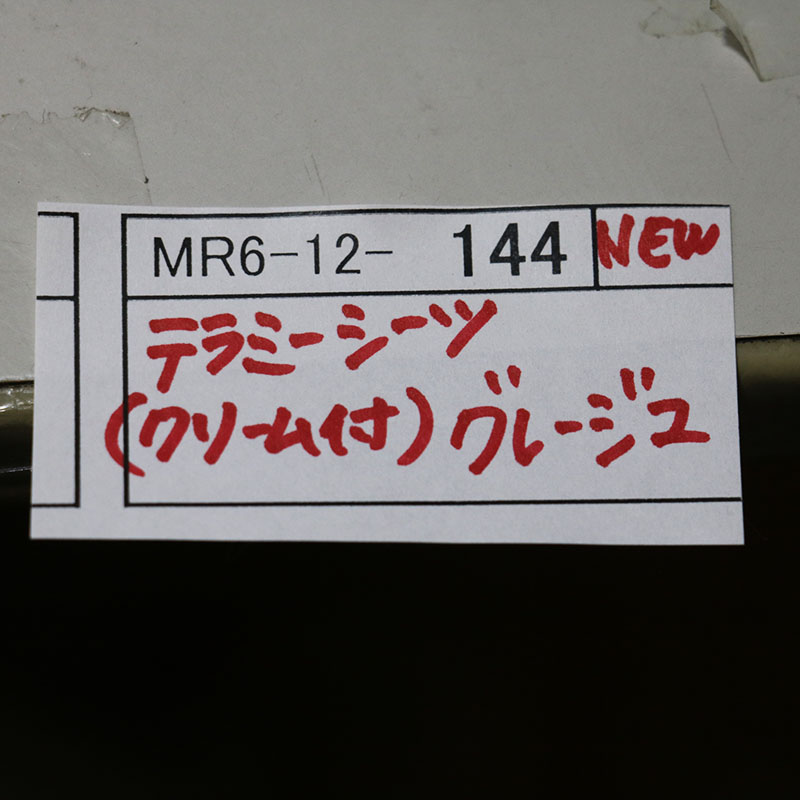 MR6-12- 144 NEW
テラミーシーツ
(クリーム付) グレージュ